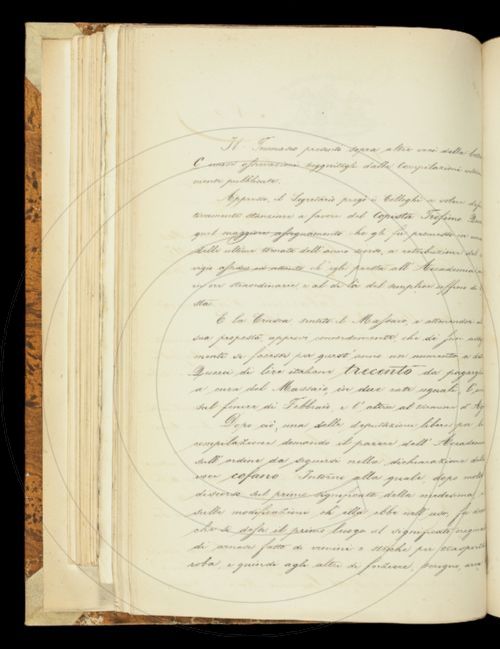 Il Tommaseo presentò sopra altre voci della lettera
C nuove osservazioni suggeritegli dalla Compilazione ultima-
mente pubblicata.
Appresso, il Segretario pregò i Colleghi a voler defini-
tivamente stanziare a favore del Copista Trofimo
quel maggiore assegnamento che gli fu promesso in una
delle ultime tornate dell'anno scorso, a retribuzione del ser-
vigio ch'egli presta all'Accademia in
ore straordinarie e al di là del semplice ufficio di
sta.
E la Crusca sentito il Massaio, e attenendosi alla
sua proposta, approvò concordemente, che di fisso asse-
mento si facesse per quest'anno un aumento a
di lire italiane trecento da pagarsi
a cura del Massaio, in due rate uguali,
sul finire di Febbraio, e l'altra al
Dopo ciò, una delle deputazioni libere per la
compilazione domandò il parere dell'Accademia
sull'ordine da seguirsi nella dichiarazione della
voce cofano. Intorno alla quale, dopo molto
discorso sul primo significato della medesima,
sulle modificazioni ch'ella ebbe nell'uso, fu
che si desse il primo luogo al significato
di arnese fatto di vimini o stecche per trasportar
roba, e quindi agli altri di forziere,